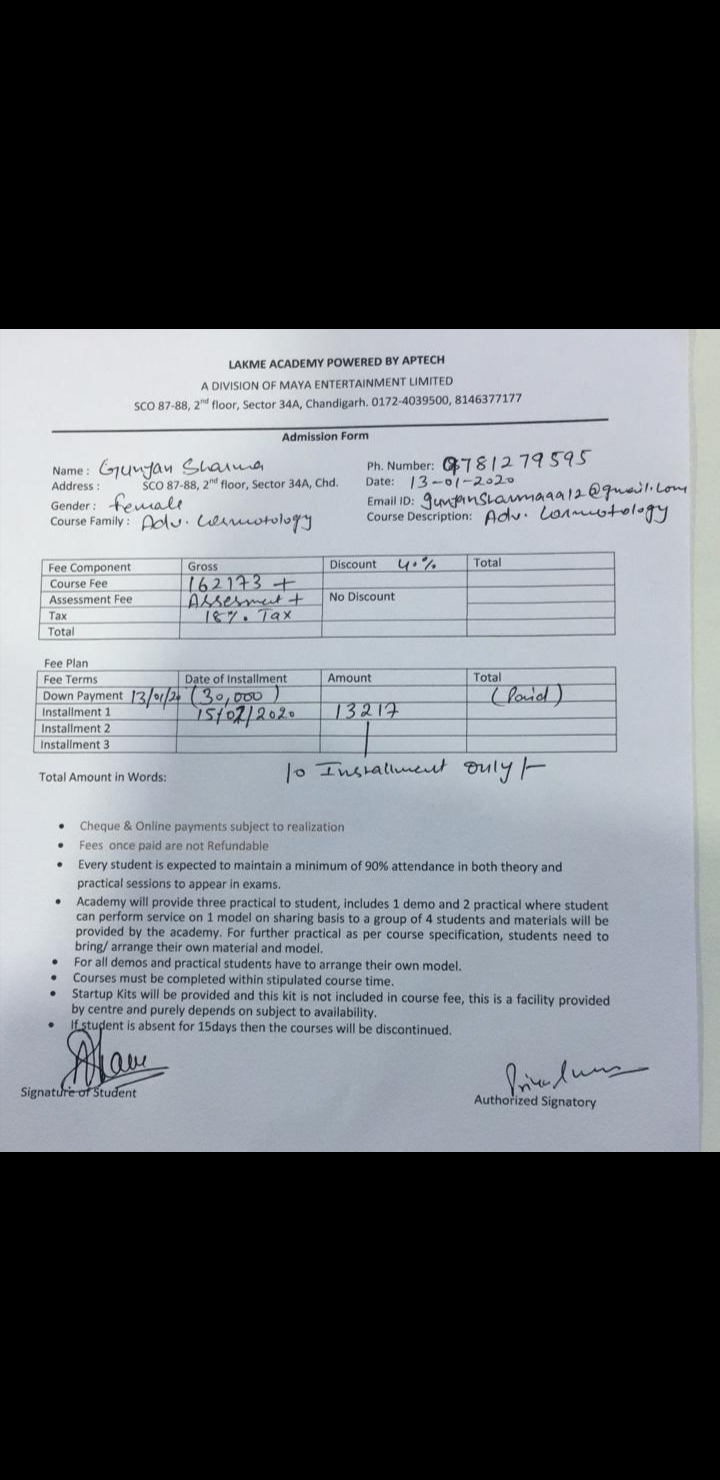 LAKME ACADEMY POWERED BY APTECH
A DIVISION OF MAYA ENTERTAINMENT LIMITED
SCO 87-88, 2nd floor, Sector 34A, Chandigarh. 0172-4039500, 8146377177
Admission Form
Name : Gunjan Sharma Ph. Number: 9781279595
Address : SCO 87-88, 2nd floor, Sector 34A, Chd. Date: 13-01-2020
Gender : female Email ID: gunjansharmaaa12@gmail.com
Course Family : Adv. Cosmotology Course Description: Adv. Cosmotology
Fee Component Gross Discount 40% Total
Course Fee 162173 +
Assessment Fee Assesment + No Discount
Tax 18% Tax
Total
Fee Plan
Fee Terms Date of Installment Amount Total
Down Payment 13/01/20 (30,000) (Paid)
Installment 1 15/02/2020 13217
Installment 2
Installment 3
Total Amount in Words: 10 Installment only/-
• Cheque & Online payments subject to realization
• Fees once paid are not Refundable
• Every student is expected to maintain a minimum of 90% attendance in both theory and
practical sessions to appear in exams.
• Academy will provide three practical to student, includes 1 demo and 2 practical where student
can perform service on 1 model on sharing basis to a group of 4 students and materials will be
provided by the academy. For further practical as per course specification, students need to
bring/ arrange their own material and model.
• For all demos and practical students have to arrange their own model.
• Courses must be completed within stipulated course time.
• Startup Kits will be provided and this kit is not included in course fee, this is a facility provided
by centre and purely depends on subject to availability.
• If student is absent for 15days then the courses will be discontinued.
Signature of Student
Authorized Signatory